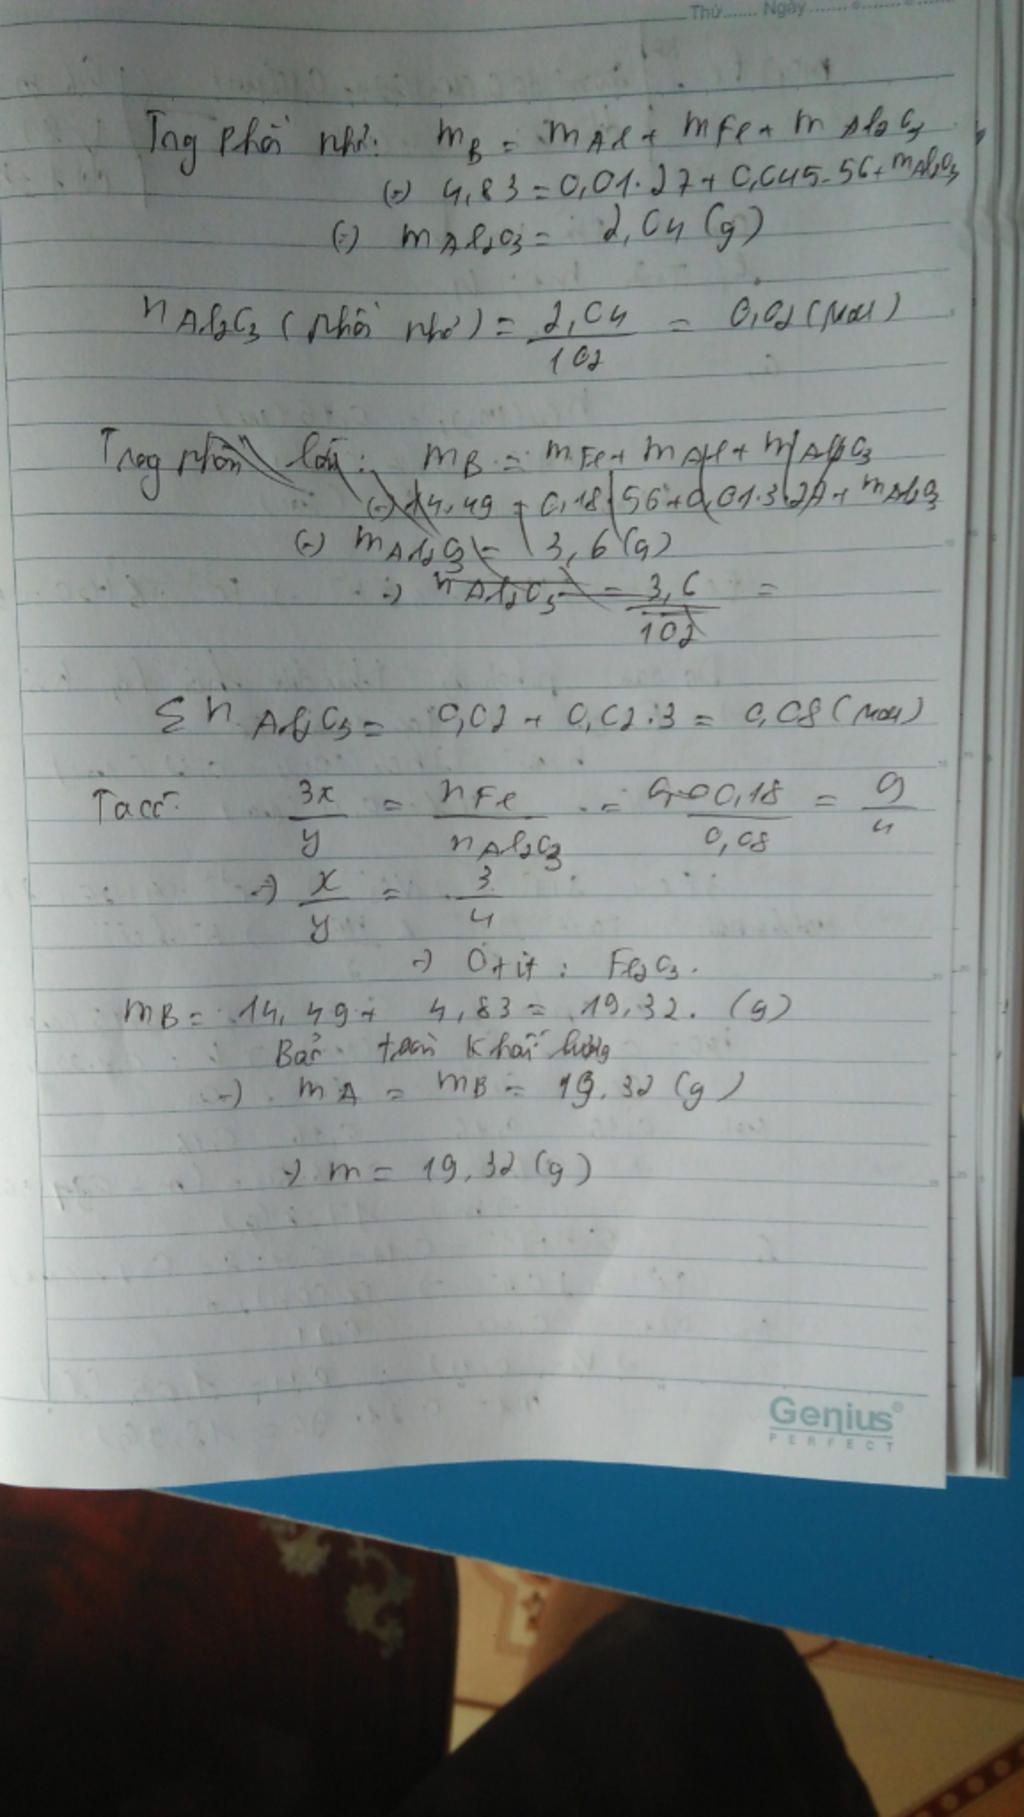 Thứ....... Ngày
Trog phần nhỏ: mB = mAl + mFe + mAl2O3
(=) 4,83 = 0,01.27 + 0,045.56 + mAl2O3
(=) mAl2O3 = 2,04 (g)
nAl2O3 (phần nhỏ) = 2,04/102 = 0,02 (mol)
Trog phần lớn: mB = mFe + mAl + mAl2O3
(=) 14,49 = 0,18.56 + 0,01.3.27 + mAl2O3
(=) mAl2O3 = 3,6 (g)
=) nAl2O3 = 3,6/102 =
Σ nAl2O3 = 0,02 + 0,02.3 = 0,08 (mol)
Ta có: 3x/y = nFe/nAl2O3 = 0,18/0,08 = 9/4
=) x/y = 3/4
=) Oxit: Fe2O3.
mB = 14,49 + 4,83 = 19,32. (g)
Bảo toàn khối lượng
=) mA = mB = 19,32 (g)
=) m = 19,32 (g)
Genius®
PERFECT